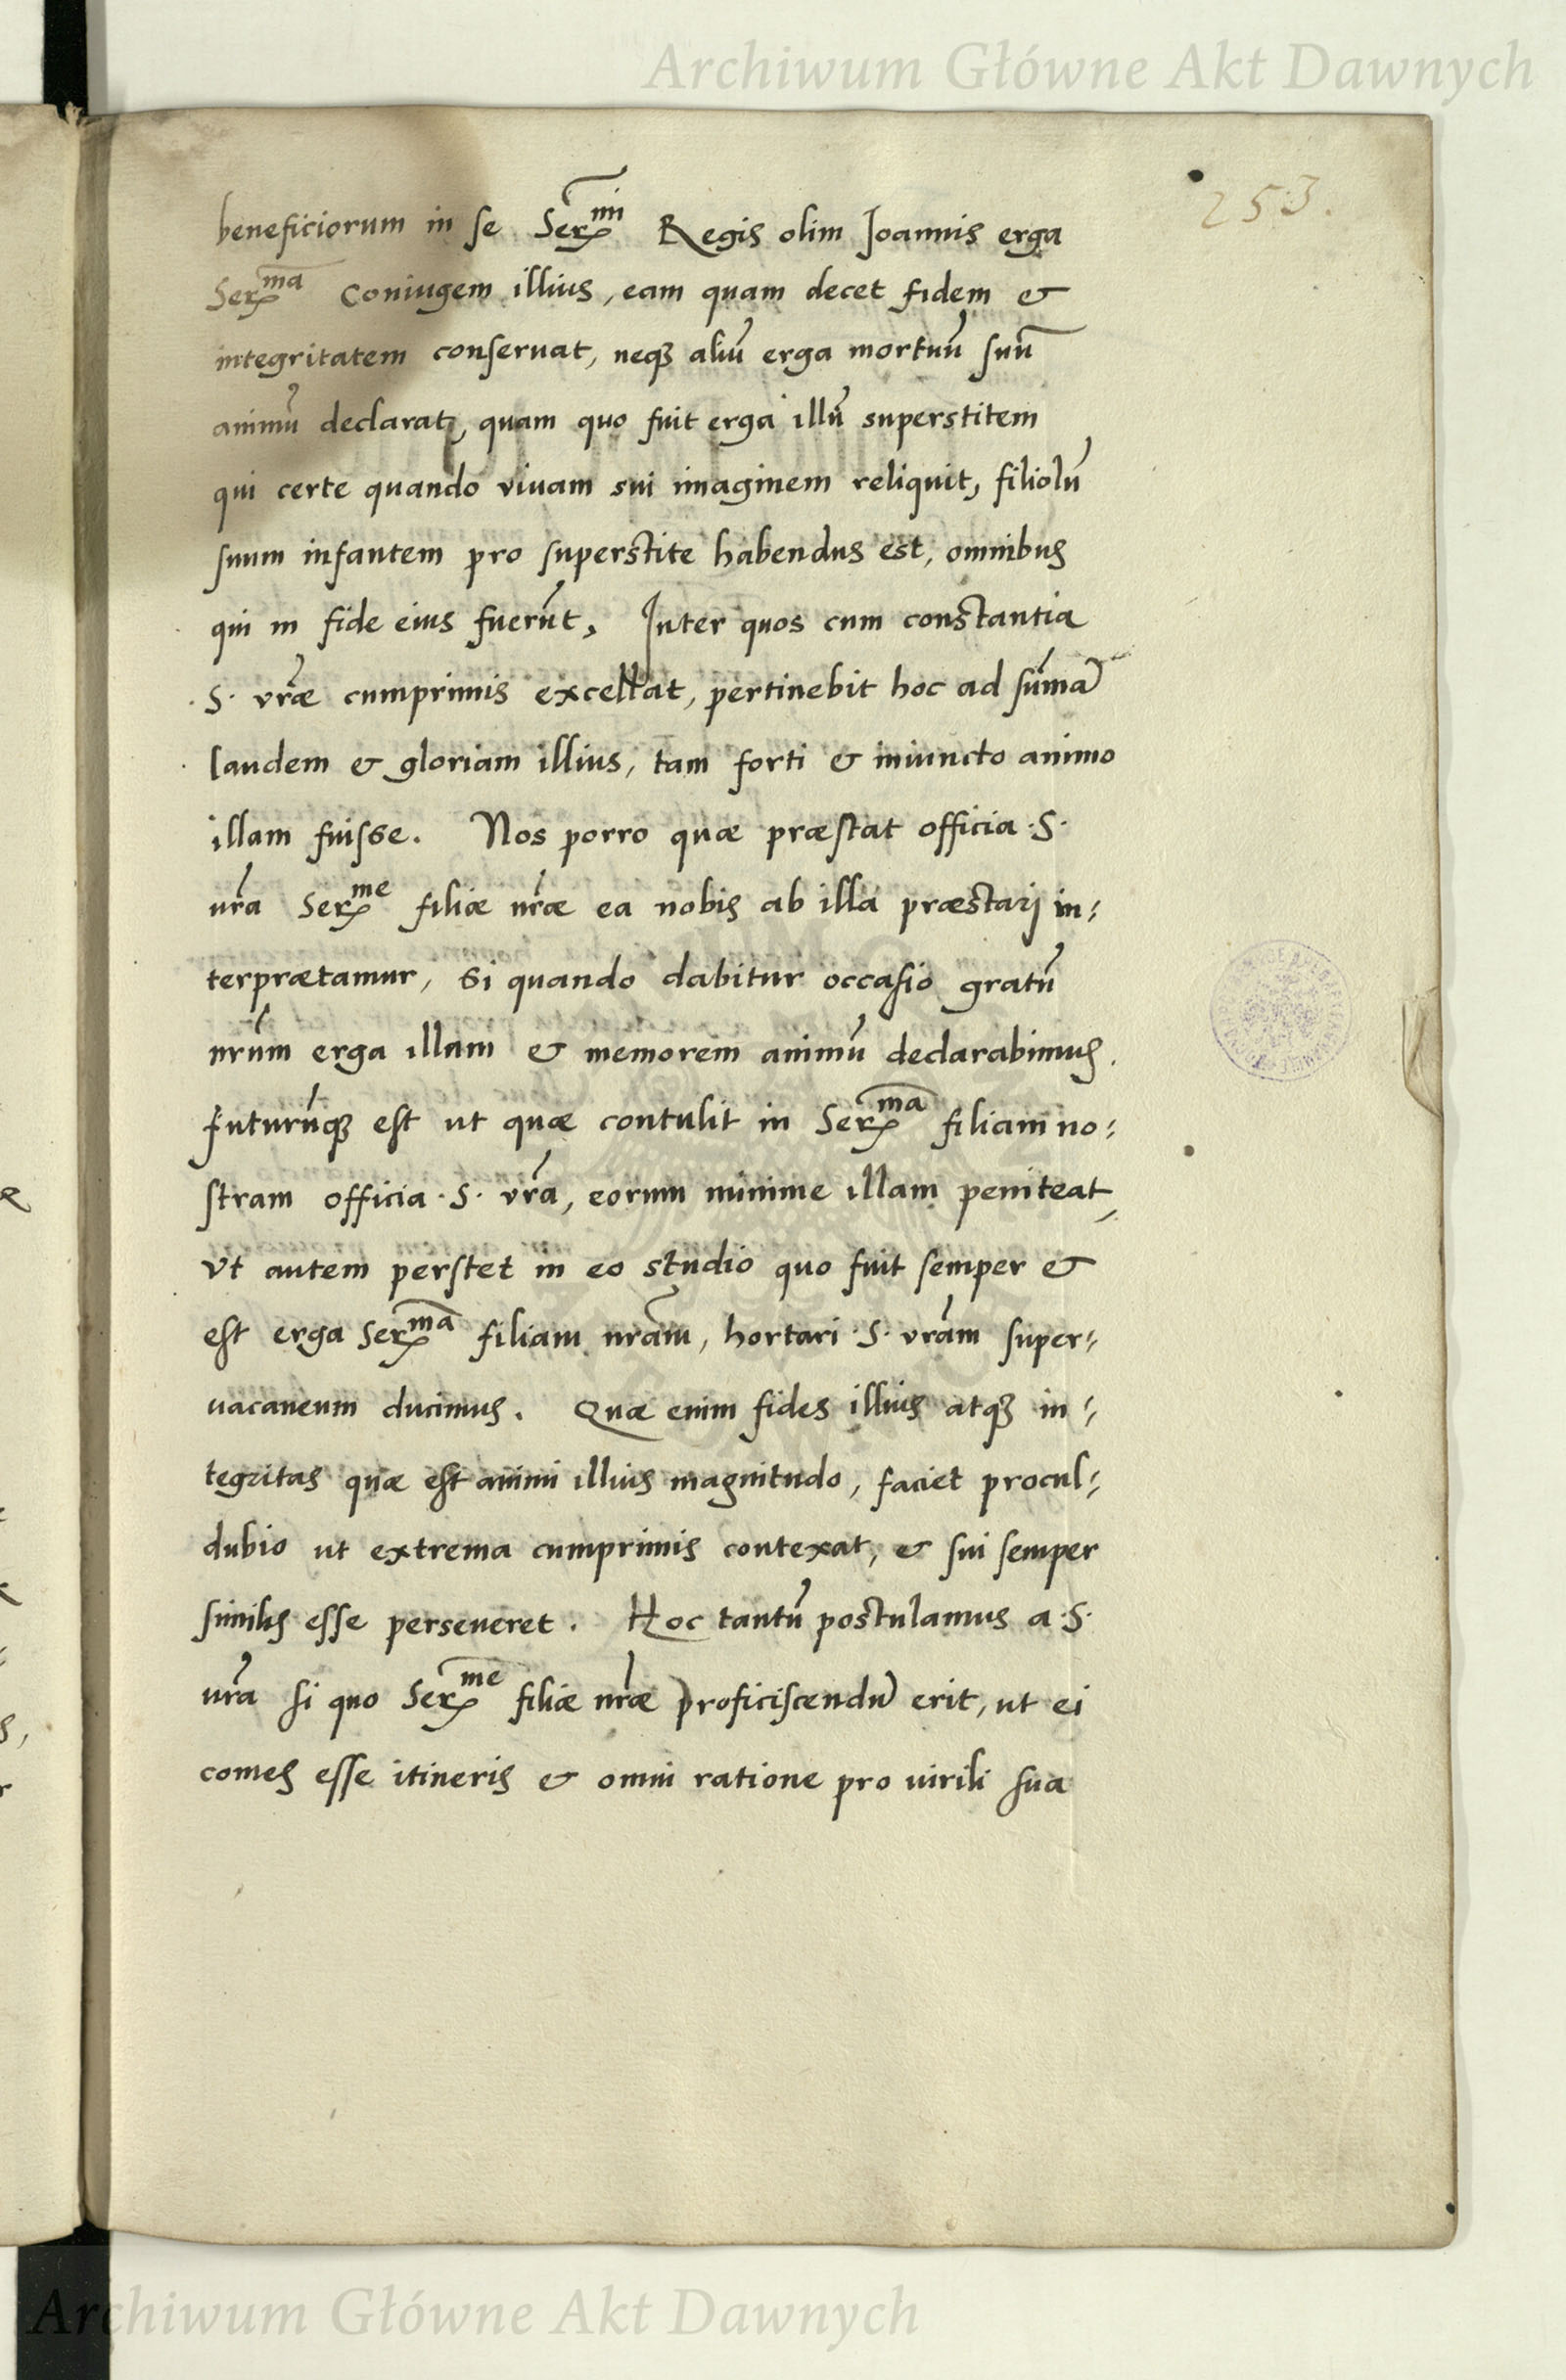 Archiwum Główne Akt Dawnych
253.
beneficiorum in se Ser^mi Regis olim Joannis erga
Ser^ma Coniugem illius, eam quam decet fidem &
integritatem conseruat, neq̃ aliũ erga mortuũ suũ
animũ declarat, quam quo fuit erga illũ superstitem
qui certe quando viuam sui imaginem reliquit, filiolũ
suum infantem pro superstite habendus est, omnibus
qui in fide eius fuerũt, Inter quos cum constantia
S. vr̃æ cumprimis excellat, pertinebit hoc ad sum̃ã
laudem & gloriam illius, tam forti & iniuncto animo
illam fuisse. Nos porro quæ præstat officia .S.
ur̃a Ser^me filiæ nr̃æ ea nobis ab illa præstari in⸗
terprætamur, Si quando dabitur occasio gratũ
nr̃um erga illam & memorem animũ declarabimus.
Futurũq̃ est ut quæ contulit in Ser^ma filiam no⸗
stram officia .S. vr̃a, eorum minime illam peniteat,
Vt autem perstet in eo studio quo fuit semper &
est erga Ser^ma filiam nr̃am, hortari .S. vr̃am super⸗
uacaneum ducimus. Quæ enim fides illius atq̃ in⸗
tegritas quæ est animi illius magnitudo, faciet procul⸗
dubio ut extrema cumprimis contexat, & sui semper
similis esse perseueret. Hoc tantũ postulamus a .S.
ur̃a si quo Ser^me filiæ nr̃æ proficiscendũ erit, ut ei
comes esse itineris & omni ratione pro uirili sua
Archiwum Główne Akt Dawnych